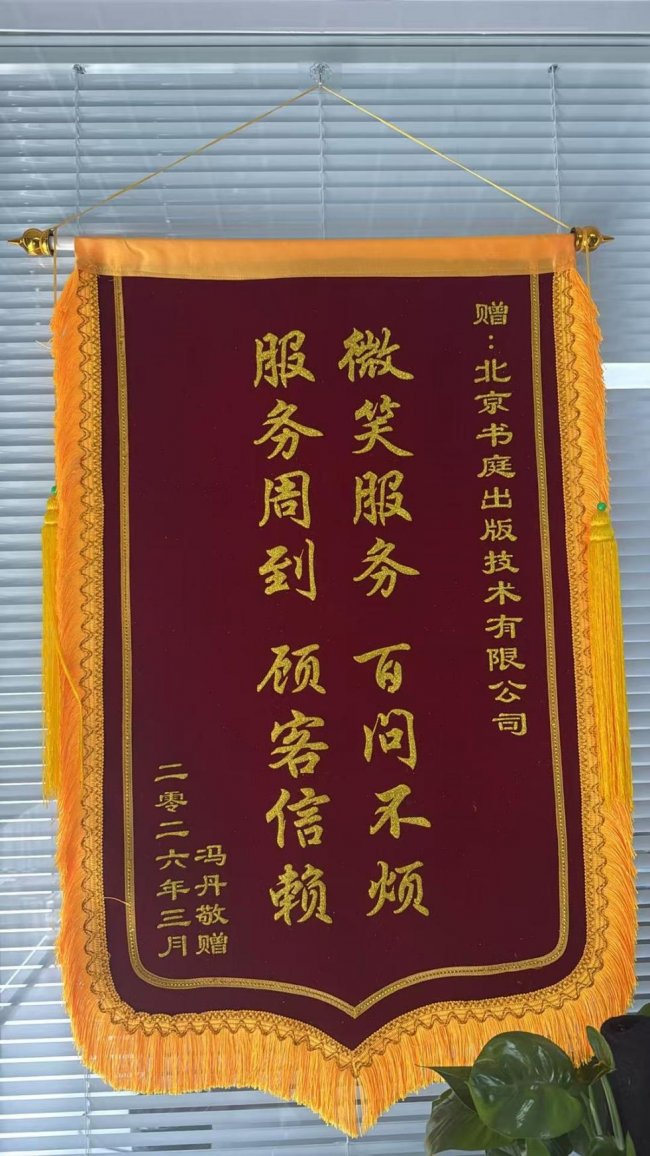 赠：北京书庭出版技术有限公司
微笑服务 百问不烦
服务周到 顾客信赖
冯丹敬赠
二零二六年三月